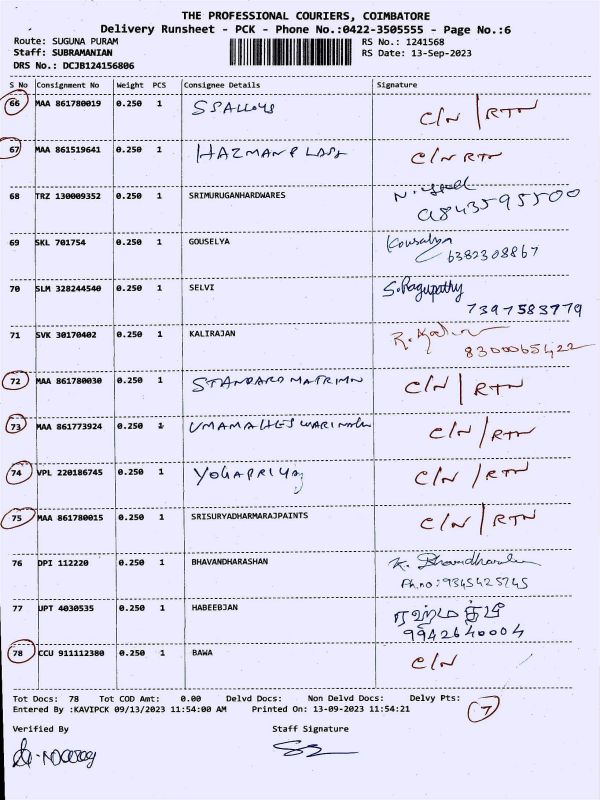 THE PROFESSIONAL COURIERS, COIMBATORE
Delivery Runsheet - PCK - Phone No.:0422-3505555 - Page No.:6
Route: SUGUNA PURAM RS No.: 1241568
Staff: SUBRAMANIAN RS Date: 13-Sep-2023
DRS No.: DCJB124156806
S No Consignment No Weight PCS Consignee Details Signature
66 MAA 861780019 0.250 1 SSALLOYS C/N / RTN
67 MAA 861519641 0.250 1 HAZMANPLAST C/N RTN
68 TRZ 130009352 0.250 1 SRIMURUGANHARDWARES
9843595500
69 SKL 701754 0.250 1 GOUSELYA Kousalya
6382308867
70 SLM 328244540 0.250 1 SELVI S.Ragupathy
7397583779
71 SVK 30170402 0.250 1 KALIRAJAN
8300065422
72 MAA 861780030 0.250 1 STANDARDMATRIMN C/N / RTN
73 MAA 861773924 0.250 1 UMAMAHESWARI C/N / RTN
74 VPL 220186745 0.250 1 YOGAPRIYA C/N / RTN
75 MAA 861780015 0.250 1 SRISURYADHARMARAJPAINTS C/N / RTN
76 DPI 112220 0.250 1 BHAVANDHARASHAN
Ph.no: 9345425745
77 UPT 4030535 0.250 1 HABEEBJAN
9942640004
78 CCU 911112380 0.250 1 BAWA C/N
Tot Docs: 78 Tot COD Amt: 0.00 Delvd Docs: Non Delvd Docs: Delvy Pts: 7
Entered By :KAVIPCK 09/13/2023 11:54:00 AM Printed On: 13-09-2023 11:54:21
Verified By Staff Signature